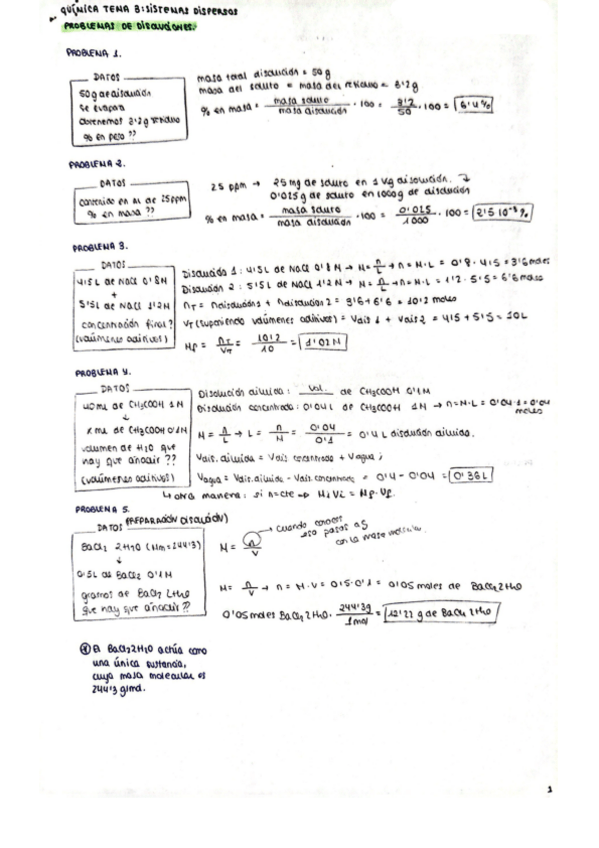 QUÍMICA TEMA 8: SISTEMAS DISPERSOS
PROBLEMAS DE DISOLUCIONES.
PROBLEMA 1.
DATOS
50g de disolución
se evapora
obtenemos 3'2g residuo
% en peso ??
masa total disolución = 50g
masa del soluto = masa del residuo = 3'2g
% en masa = masa soluto / masa disolución · 100 = 3'2 / 50 · 100 = 6'4%
PROBLEMA 2.
DATOS
contenido en al de 25ppm
% en masa ??
25 ppm → 25mg de soluto en 1 kg disolución.
0'025g de soluto en 1000g de disolución
% en masa = masa soluto / masa disolución · 100 = 0'025 / 1000 · 100 = 2'5 10⁻³ %
PROBLEMA 3.
DATOS
4'5L de NaCl 0'8M
+
5'5L de NaCl 1'2M
concentración final?
(volúmenes aditivos)
Disolución 1: 4'5L de NaCl 0'8M → M = n/L → n = M·L = 0'8 · 4'5 = 3'6 moles
Disolución 2: 5'5L de NaCl 1'2M → M = n/L → n = M·L = 1'2 · 5'5 = 6'6 moles
nT = ndisolución1 + ndisolución2 = 3'6 + 6'6 = 10'2 moles
VT (suponiendo volúmenes aditivos) = Vdis 1 + Vdis 2 = 4'5 + 5'5 = 10L
Mf = nT / VT = 10'2 / 10 = 1'02M
PROBLEMA 4.
DATOS
40 mL de CH3COOH 1M
↓
x mL de CH3COOH 0'1M
volumen de H2O que
hay que añadir ??
(volúmenes aditivos)
Disolución diluida: vol. de CH3COOH 0'1M
Disolución concentrada: 0'04L de CH3COOH 1M → n = M·L = 0'04 · 1 = 0'04 moles
M = n/L → L = n/M = 0'04 / 0'1 = 0'4L disolución diluida.
Vdis. diluida = Vdis concentrada + Vagua;
Vagua = Vdis. diluida - Vdis concentrada = 0'4 - 0'04 = 0'36L
↳ otra manera: si n=cte → Mi·Vi = Mf·Vf.
PROBLEMA 5.
(PREPARACIÓN DISOLUCIÓN)
DATOS
BaCl2 2H2O (Mm=244'3)
↓
0'5L de BaCl2 0'1M
gramos de BaCl2 2H2O
que hay que añadir ??
M = n/V
cuando conoces
eso pasas a g
con la masa molecular.
M = n/V → n = M·V = 0'5 · 0'1 = 0'05 moles de BaCl2 2H2O
0'05 moles BaCl2 2H2O · 244'3g / 1mol = 12'22 g de BaCl2 2H2O
El BaCl2 2H2O actúa como
una única sustancia,
cuya masa molecular es
244'3 g/mol.
1